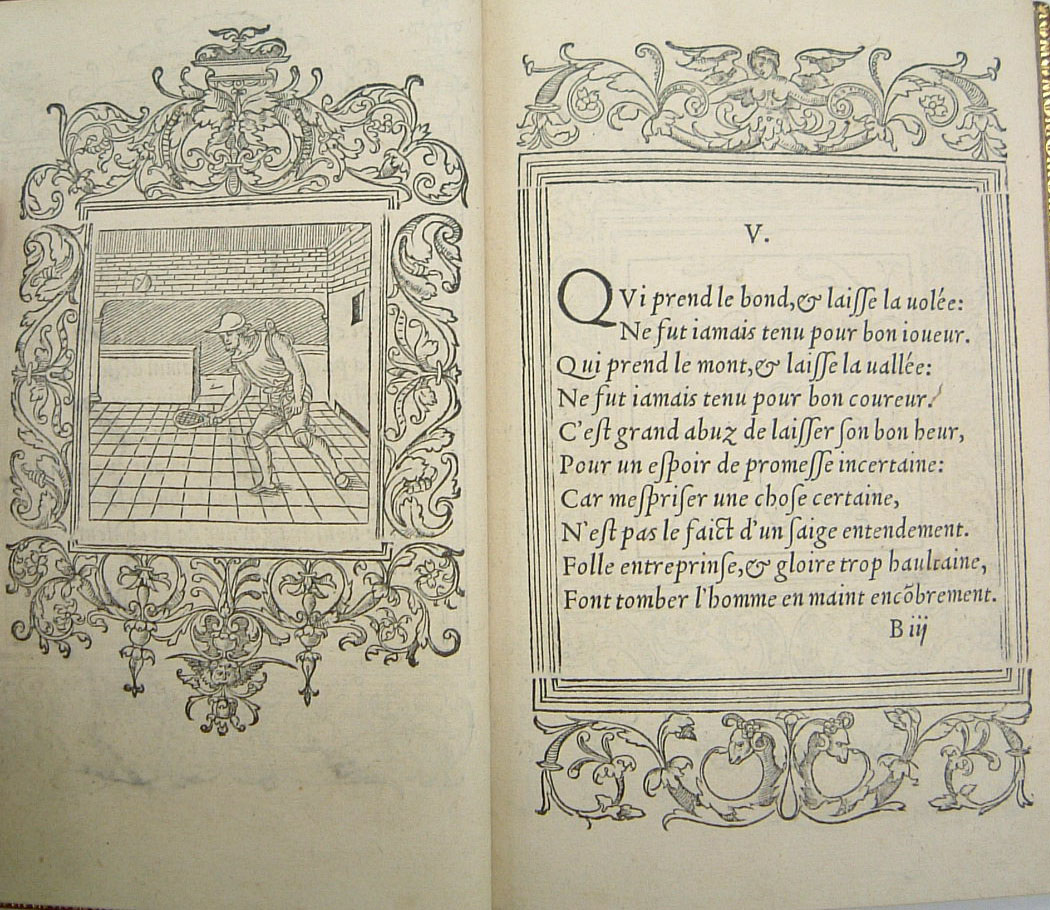 V.
QVi prend le bond,& laiſſe la uolée:
Ne fut iamais tenu pour bon ioueur.
Qui prend le mont,& laiſſe la uallée:
Ne fut iamais tenu pour bon coureur.
C'eſt grand abuz de laiſſer ſon bon heur,
Pour un eſpoir de promeſſe incertaine:
Car meſpriſer une choſe certaine,
N'eſt pas le faict d'un ſaige entendement.
Folle entreprinſe,& gloire trop haultaine,
Font tomber l'homme en maint encõbrement.
B iij